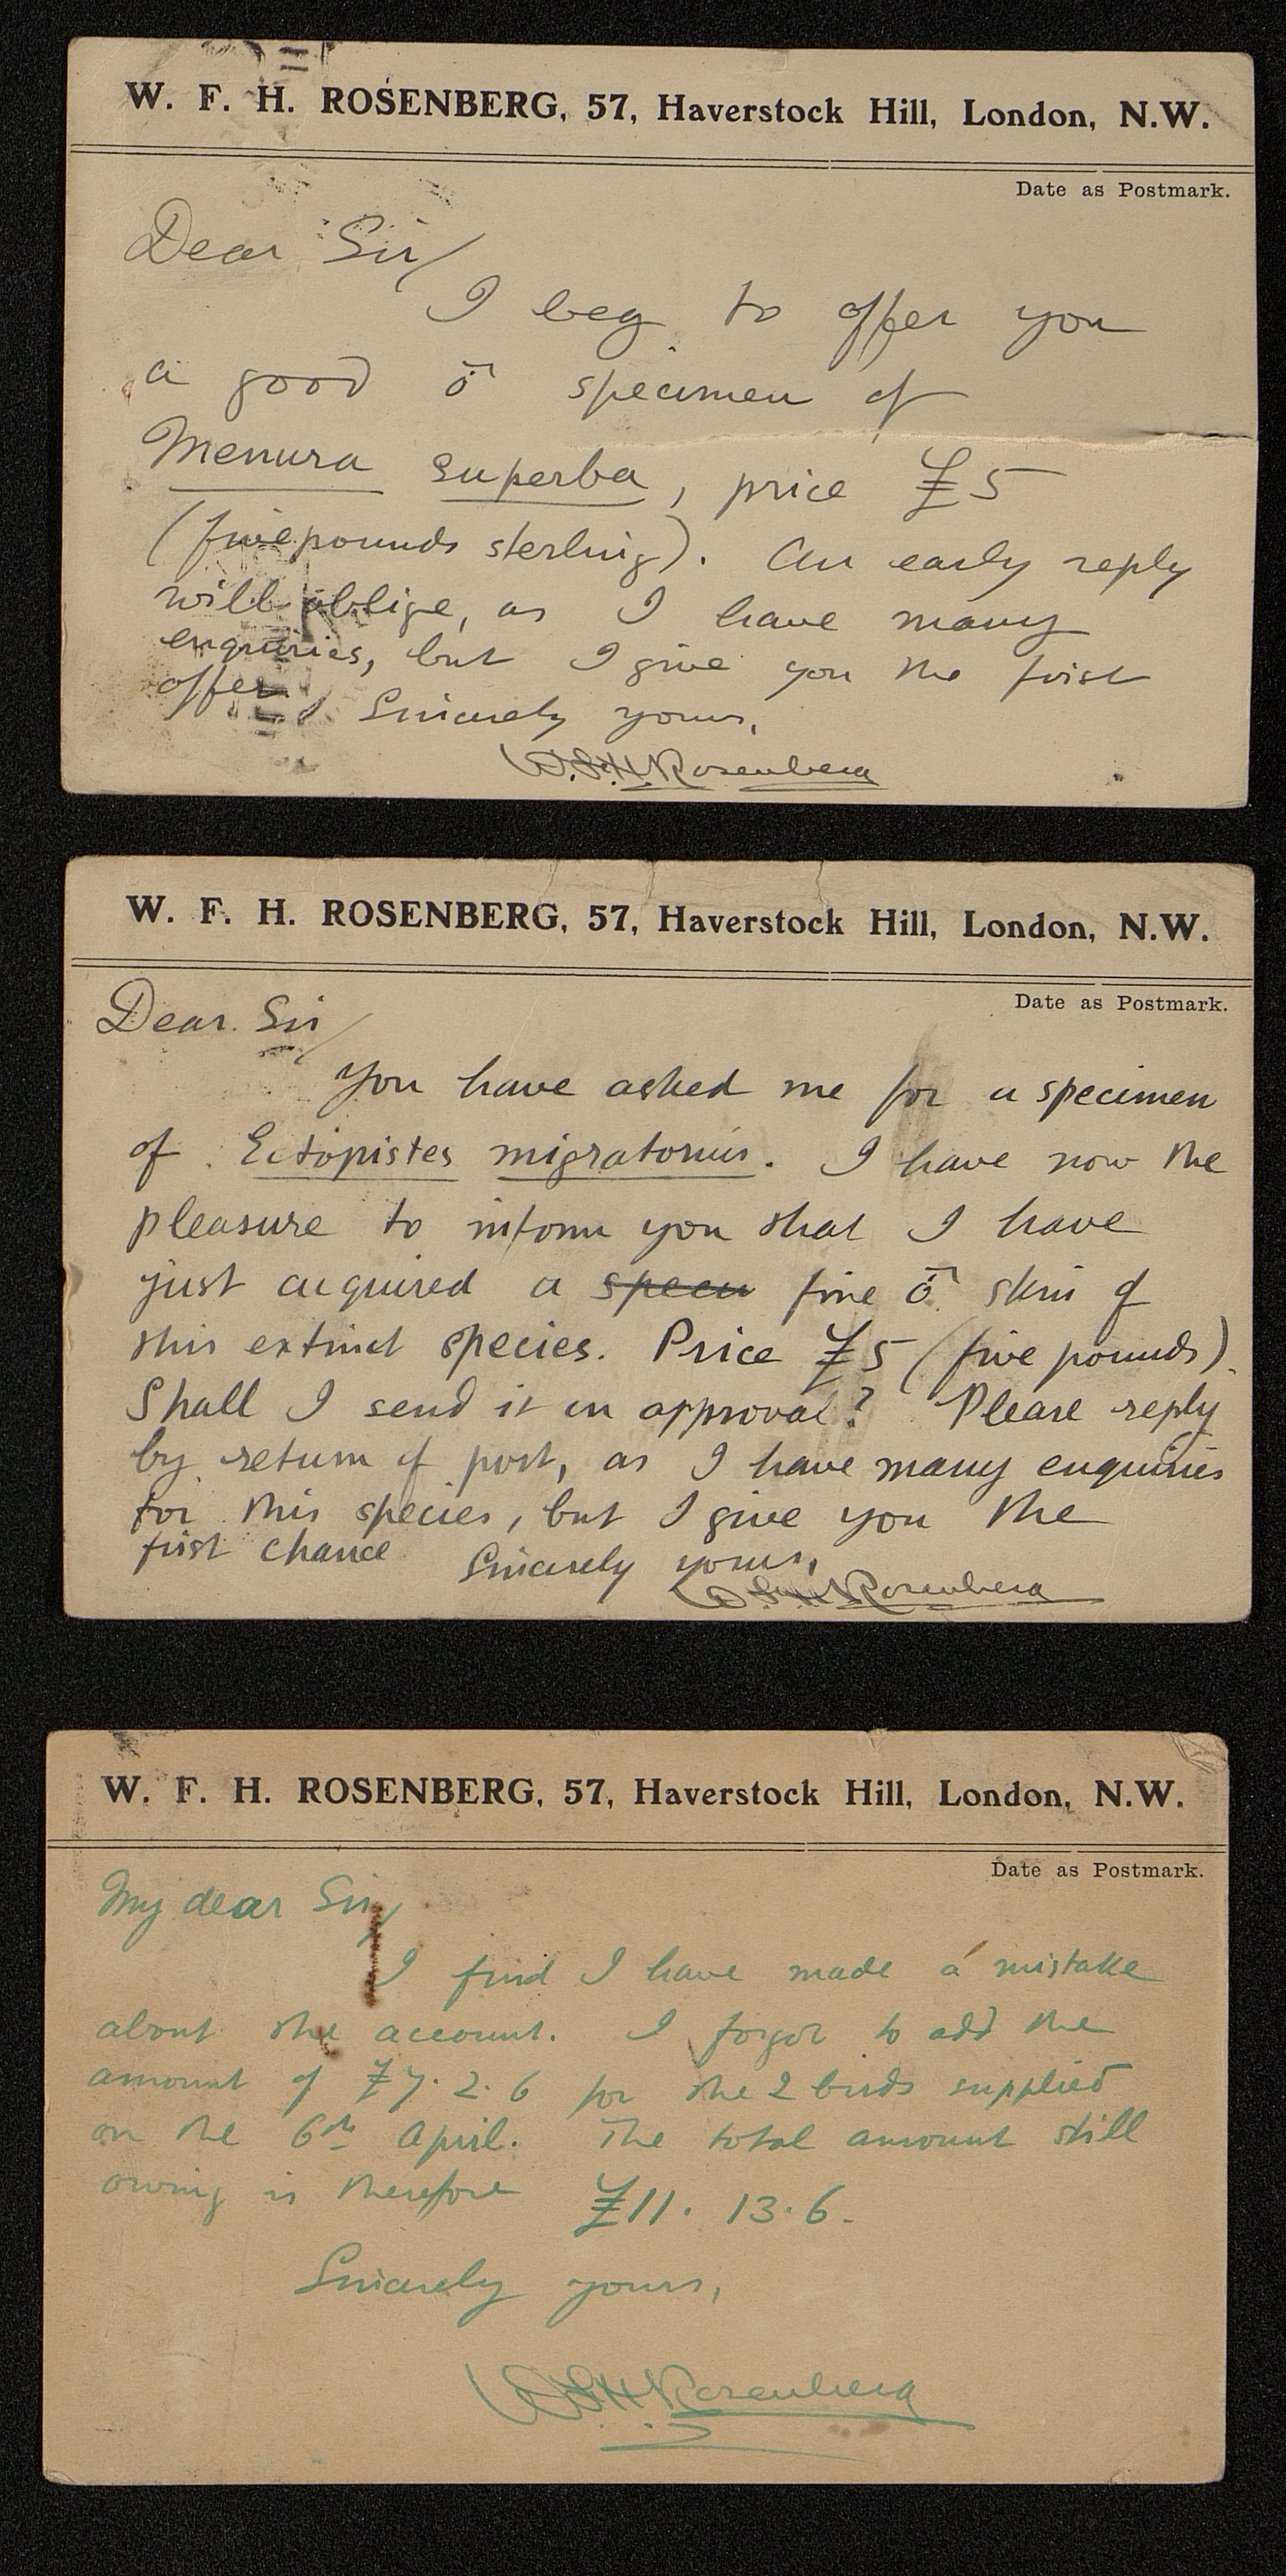 W. F. H. ROSENBERG, 57, Haverstock Hill, London, N.W.
Date as Postmark.
Dear Sir/
I beg to offer you
a good ♂ specimen of
Menura superba, price £5
(five pounds sterling). An early reply
will oblige, as I have many
enquiries, but I give you the first
offer. Sincerely yours,
W.F.H. Rosenberg
W. F. H. ROSENBERG, 57, Haverstock Hill, London, N.W.
Date as Postmark.
Dear Sir/
You have asked me for a specimen
of Ectopistes migratorius. I have now the
pleasure to inform you that I have
just acquired a specu fine ♂ skin of
this extinct species. Price £5 (five pounds).
Shall I send it on approval? Please reply
by return of post, as I have many enquiries
for this species, but I give you the
first chance Sincerely yours,
W.F.H. Rosenberg
W. F. H. ROSENBERG, 57, Haverstock Hill, London, N.W.
Date as Postmark.
My dear Sir/
I find I have made a mistake
about the account. I forgot to add the
amount of £7.2.6 for the 2 birds supplied
on the 6th April. The total amount still
owing is therefore £11.13.6.
Sincerely yours,
W.F.H. Rosenberg